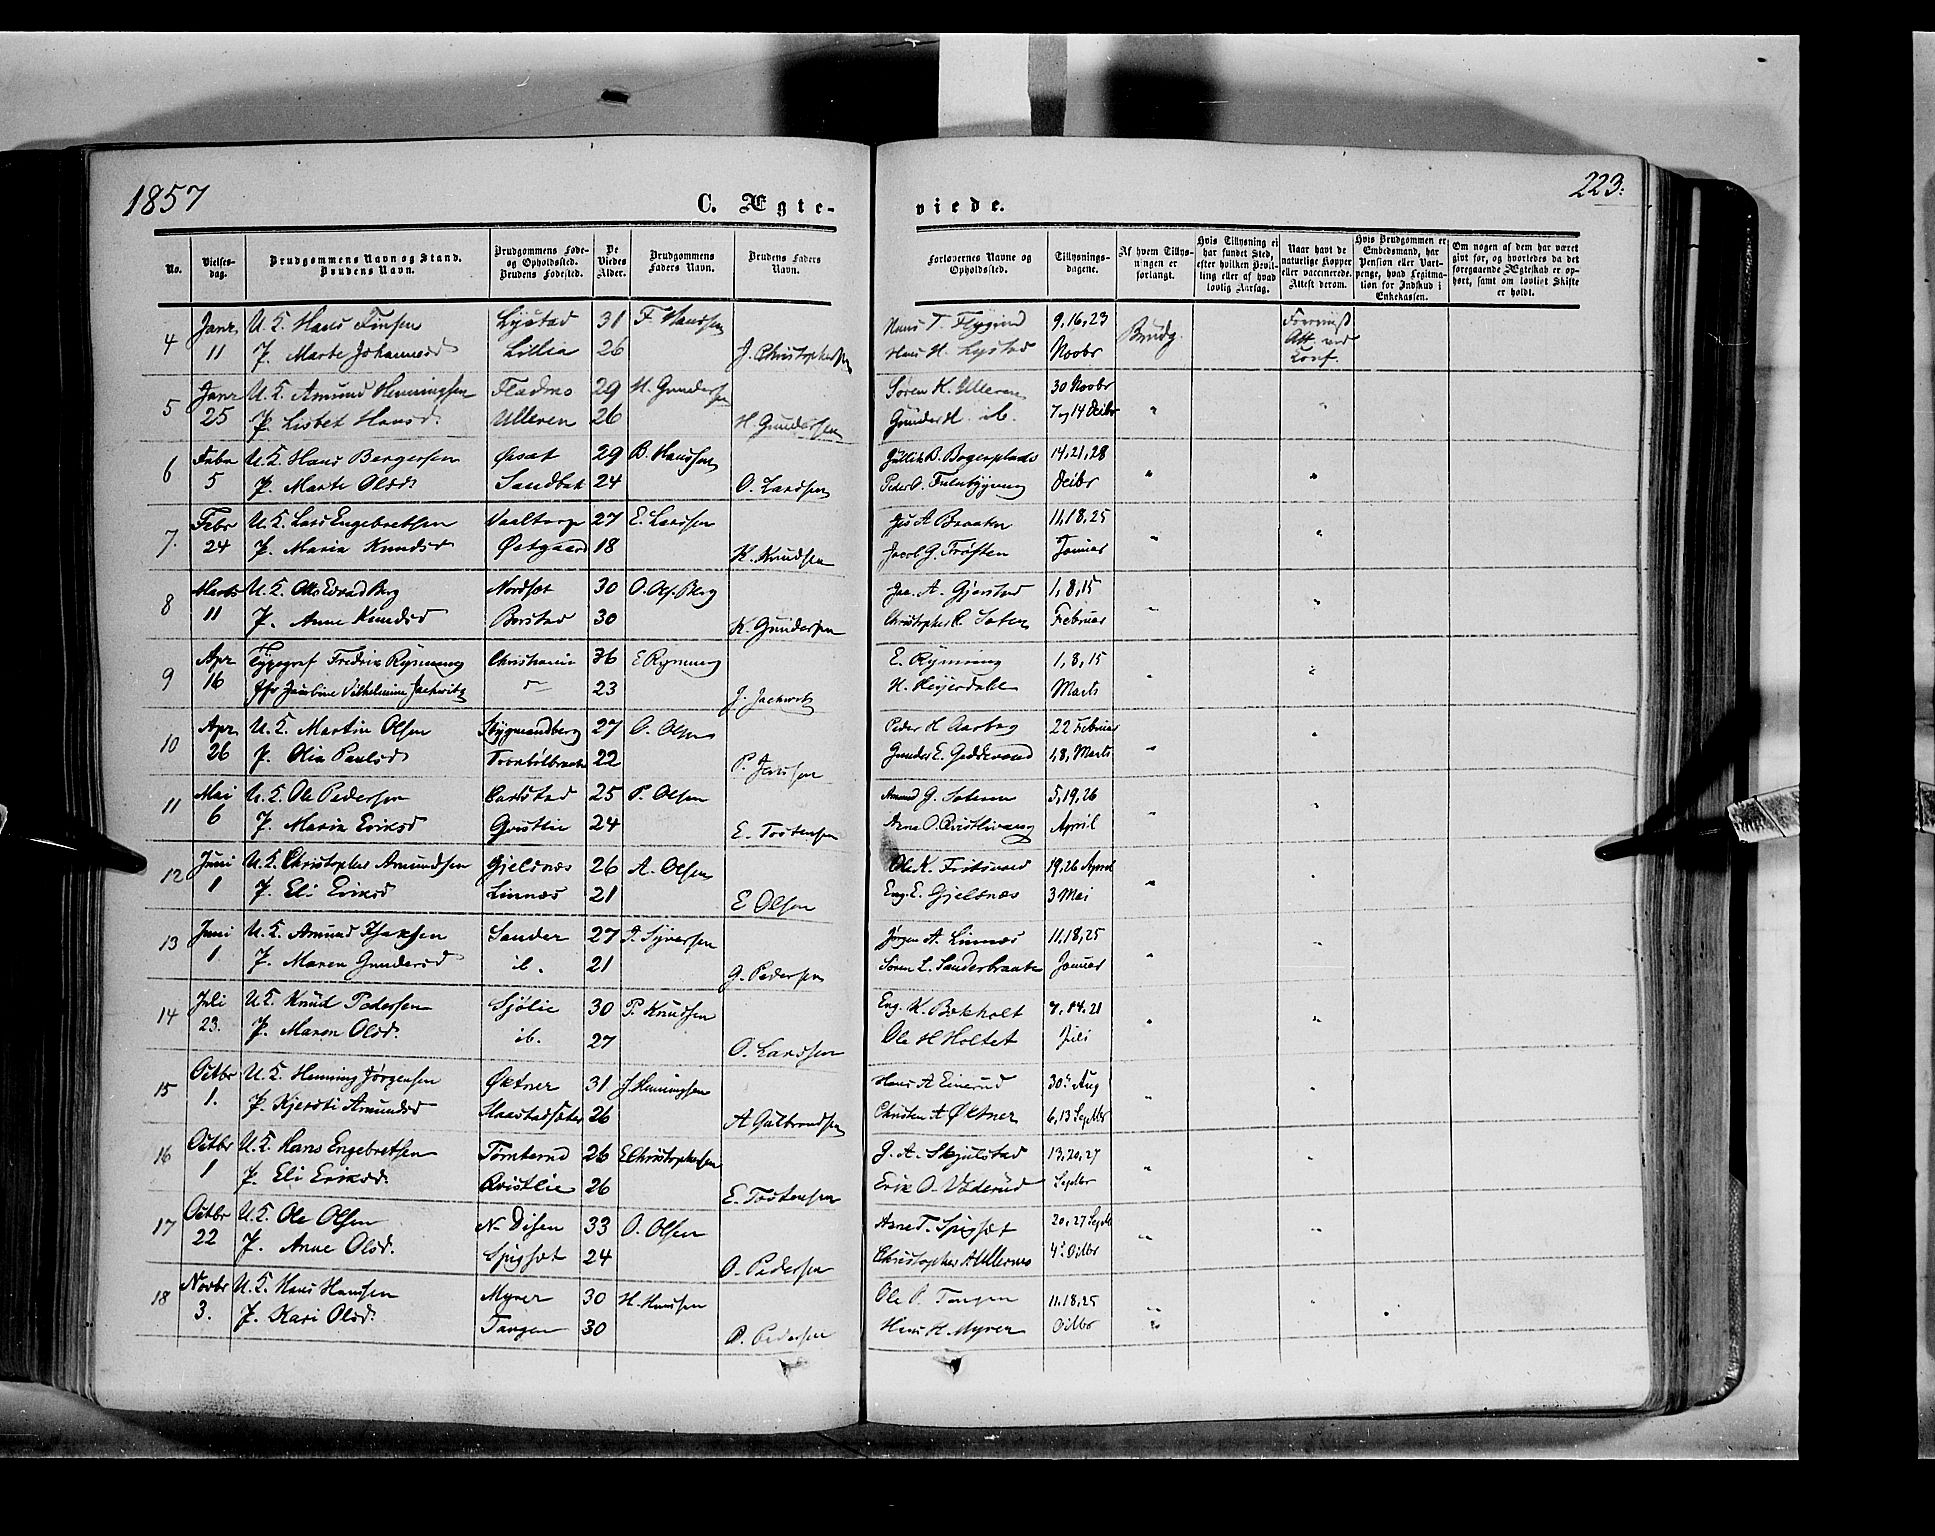 1857
C. Ægte-
viede.
223.
No.
Vielses-
dag.
Brudgommens Navn og Stand.
Brudens Navn.
Brudgommens Føde-
og Opholdssted.
Brudens Fødested.
De
Viedes
Alder.
Brudgommens
Faders Navn.
Brudens Faders
Navn.
Forlovernes Navne og
Opholdssted.
Tillysnings-
dagene.
Af hvem Tillys-
ningen er
forlangt.
Hvis Tillysning ei
har fundet Sted,
efter hvilken Bevil-
ling eller af hvad
lovlig Aarsag.
Naar havt de
naturlige Kopper
eller vaccinerede.
Attest derom.
Hvis Brudgommen er
Embedsmand, har
Pension eller Vart-
penge, hvad Legitima-
tion for Indskud i
Enkekassen.
Om nogen af dem har været
givt før, og hvorledes da det
foregaaende Ægteskab er op-
hørt, samt om lovligt Skifte
er holdt.
4 Janr U. K. Hans Finsen Lystad 31 F. Hansen Hans T. 9, 16, 23 Brudg.
11 P. Marte Johannesd Lillia 26 J. Christophersen Hans H. Lystad Novbr Att. ved Conf.
5 Janr U. K. Amund Henningsen 29 H. Gundersen Søren K. Ulleren 30 Novbr
25 P. Lisbet Hansd. Ulleren 26 H. Gundersen Gunder H. ib. 7 og 14 Decbr " "
6 Febr U. K. Hans Bergersen 29 B. Hansen 14, 21, 28
5 P. Marte Olsd Sandbak 24 O. Larsen Peder O. Decbr " "
7. Febr U. K. Lars Engebretsen Vaaltorp 27 E. Larssen A Braaten 11, 18, 25
24 P. Maria Knudsd Østgaard 18 K. Knudsen Jacob G. Januar " "
8 Marts U. K. Berg Nordset 30 O. Berg A. Gjerstad 1, 8, 15
11 P. Anne Knudsd 30 K. Gundersen Christopher Februar " "
9 Apr Typograf Fredrik Rynning Christiania 36 E Rynning E. Rynning 1, 8, 15
16 Vilhelmine Jackwitz 23 J. Jackwitz H. Heyerdahl Marts " "
10 Apr U. K. Martin Olsen 27 O. Olsen Peder H Aarbog 22 Februar
26 P. Olia Paulsd 22 P. Jenssen Gunder E. 1, 8, Marts " "
11 Mai U. K. Ole Pedersen Carlstad 25 P. Olsen Amund G. 5, 19, 26
6 P. Maria Eriksd Qvistlie 24 E. Tostensen Arne O. April " "
12 Juni U. K. Christopher Amundsen Gjelsnes 26 A. Olsen Ole K. 19, 26 April
1 P. Eli Eriksd Linnæs 21 E Olsen Eng. E. Gjelsnæs 3 Mai " "
13 Juni U. K. Amund Sander 27 Syversen Jørgen A. Linnæs 11, 18, 25
1 P. Maren Gundersd ib. 21 G. Pedersen Søren L. Sanderbraaten Januar " "
14 Juli U. K. Knud Pedersen Sjølie 30 P. Knudsen Eng. K. Bekholt 7, 14, 21
23. P. Maren Olsd. ib. 27 O. Larssen Ole H Holtet Juli " "
15 Octbr U. K. Henning Jørgensen Øktner 31 J. Henningsen Hans A Einerud 30 Aug
1. P. Kjersti Amundsd Haarstadsæter 26 A Gulbrandsen Christen A Øktner 6, 13 Septbr " "
16 Octbr U. K. Hans Engebretsen Tomterud 26 E Christophersen G. A. Skjulstad 13, 20, 27
1 P. Eli Eriksd. Qvistlie 26 E. Tostensen Erik O. Septbr " "
17 Octbr U. K. Ole Olsen N. Disen 33 O. Olsen Arne T. Spigset 20, 27 Septb
22 P. Anne Olsd. Spigset 24 O. Pedersen Christopher A Ullernæs 4 Octbr " "
18 Novbr U. K. Hans Hansen Myrer 30 H. Hansen Ole P. Tangen 11, 18, 25
3. P. Kari Olsd. Tangen 30 O. Pedersen Hans H. Myrer Octbr " "